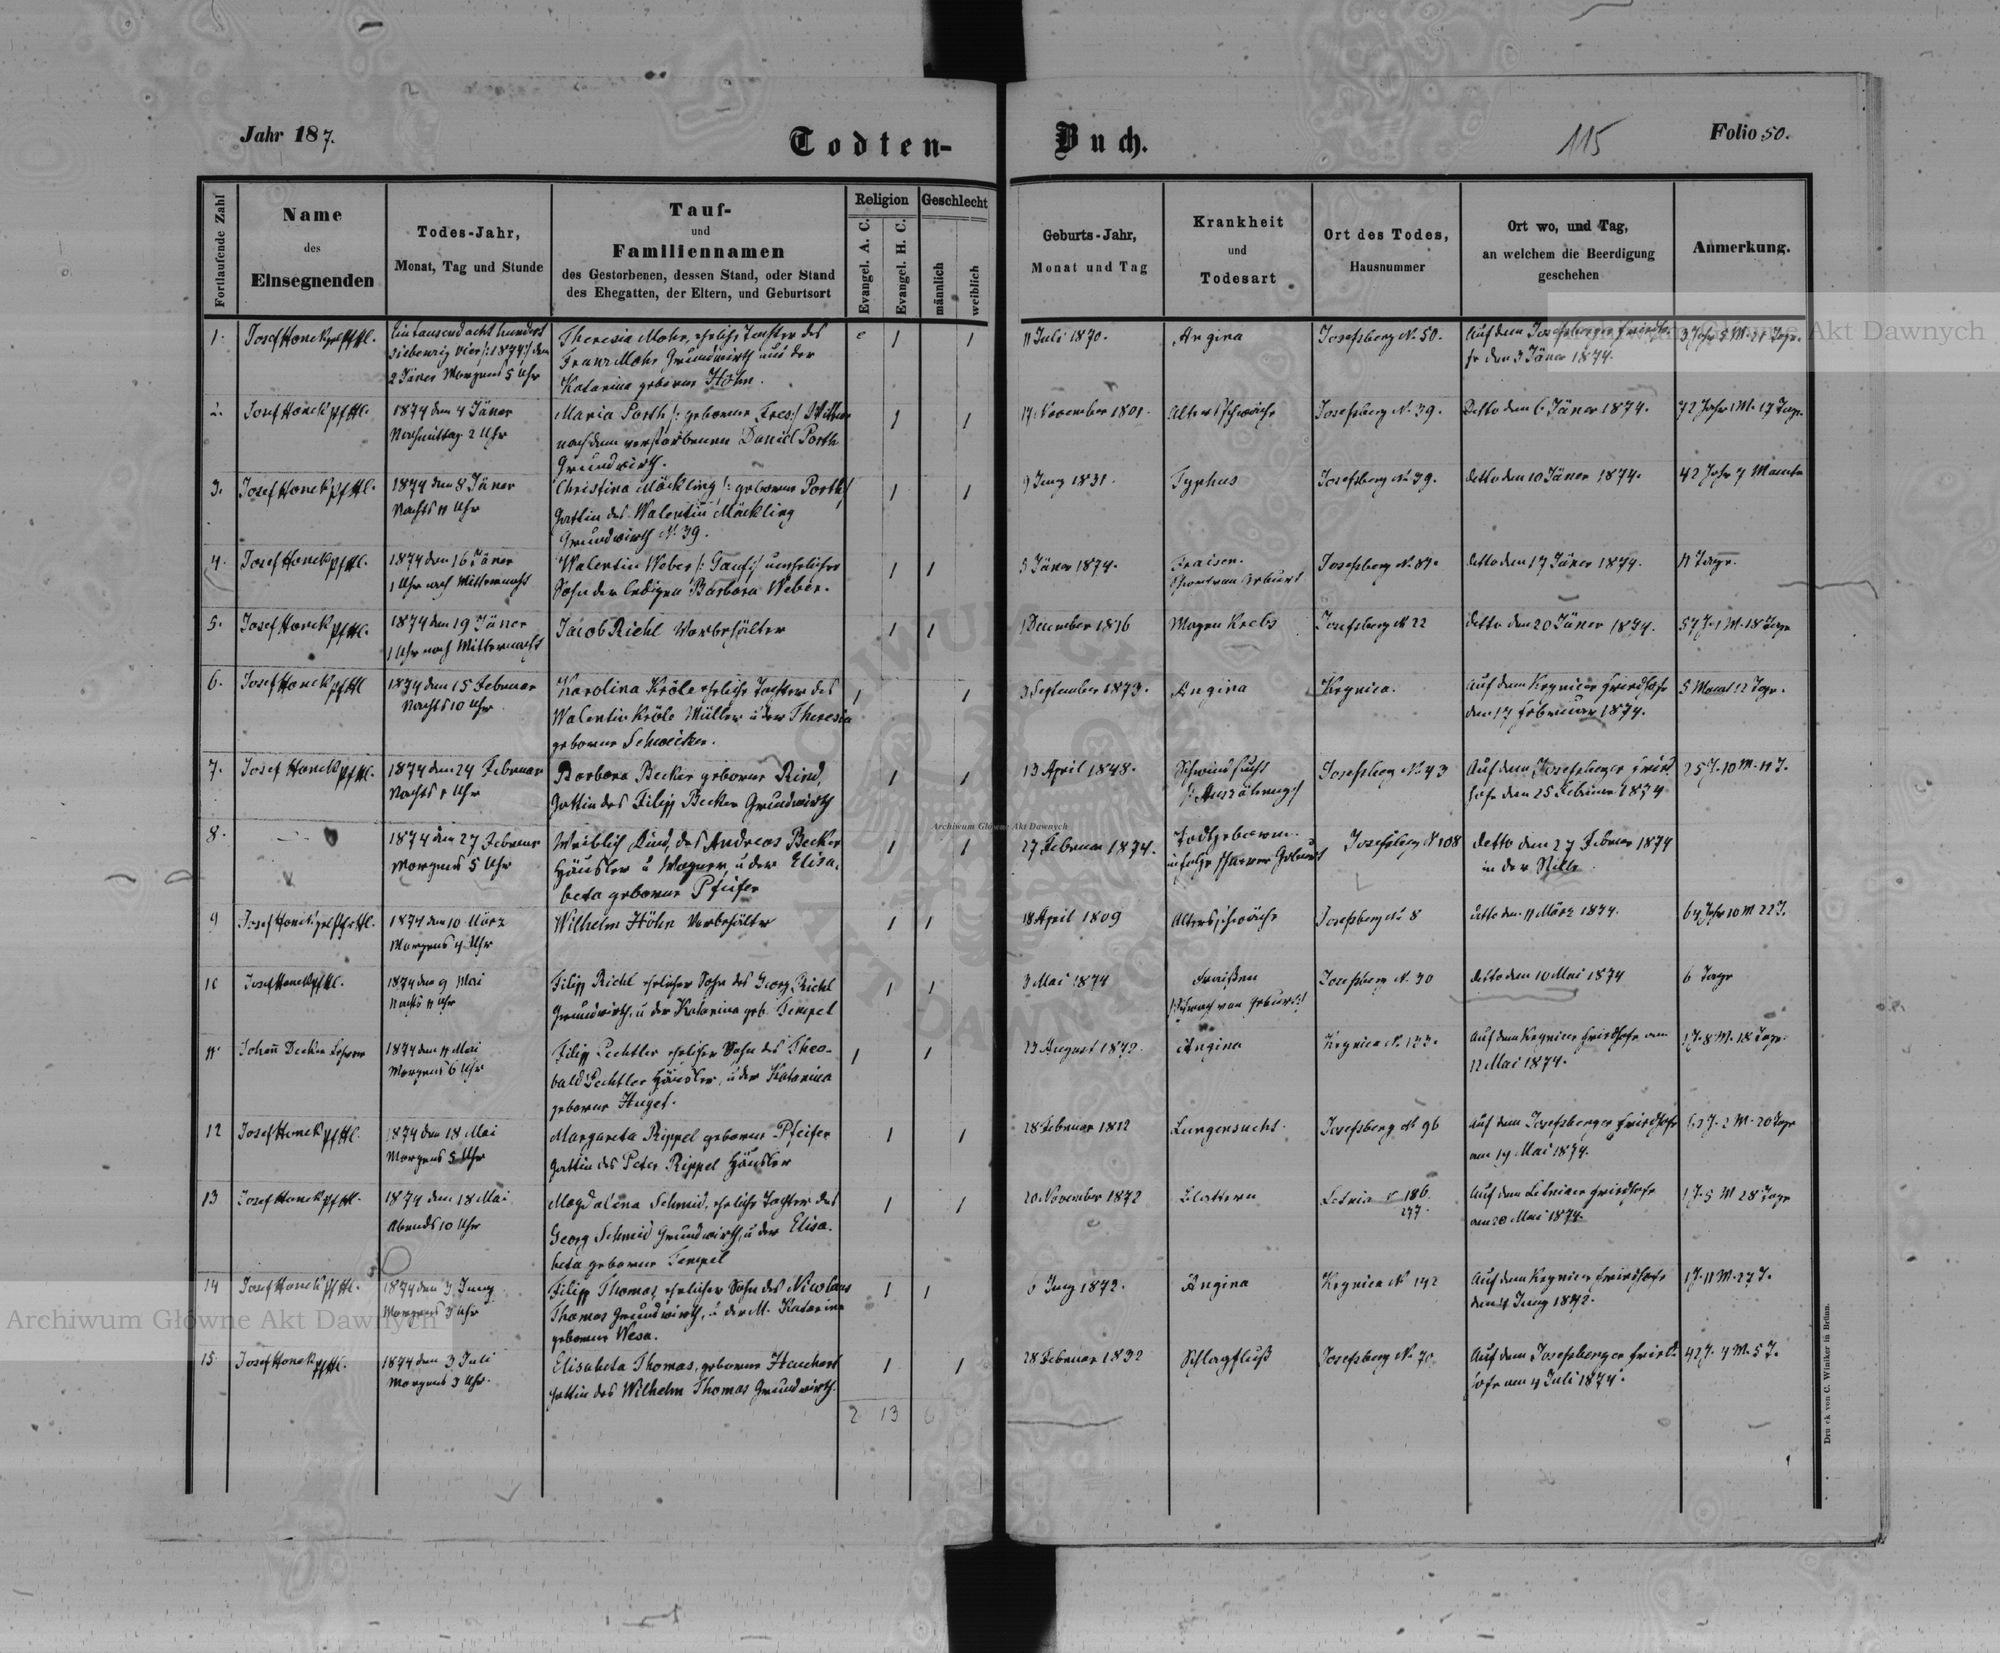 Jahr 187.
Todten-
Buch.
115
Folio 50.
Fortlaufende Zahl
Name
des
Einsegnenden
Todes-Jahr,
Monat, Tag und Stunde
Tauf-
und
Familiennamen
des Gestorbenen, dessen Stand, oder Stand
des Ehegatten, der Eltern, und Geburtsort
Religion
Evangel. A. C.
Evangel. H. C.
Geschlecht
männlich
weiblich
Geburts-Jahr,
Monat und Tag
Krankheit
und
Todesart
Ort des Todes,
Hausnummer
Ort wo, und Tag,
an welchem die Beerdigung
geschehen
Anmerkung.
1. Josef Honck
Eintausend acht hundert
siebenzig vier /:1874:/ den
2 Jäner Morgens 5 Uhr
Theresia Mohr, eheliche Tochter des
Franz Mohr Grundwirth und der
Katarina geborene Höhn.
1 1
11 Juli 1870. Angina Josefsberg N. 50.
Auf dem Josefsberger Friedho-
fe den 3 Jäner 1874.
3 Jahr 5 M. 21 Tage.
2. Josef Honck Pf Hl.
1874 den 4 Jäner
Nachmittag 2 Uhr
Maria Porth /: geborene Fres:/ Wittwe
nach dem verstorbenen Daniel Porth
Grundwirth.
1 1
17. November 1801. Altersschwäche Josefsberg N. 39. Detto den 6 Jäner 1874. 72 Jahr 1 M. 17 Tage.
3. Josef Honck Pf Hl.
1874 den 8 Jäner
Nachts 11 Uhr
Christina Möckling /: geborene Porth:/
Gattin des Walentin Möckling
Grundwirth N. 39.
1 1
9 Juny 1831. Typhus Josefsberg N. 39. detto den 10 Jäner 1874. 42 Jahr 7 Monate
4. Josef Honck Pf Hl.
1874 den 16 Jäner
1 Uhr nach Mitternacht
Walentin Weber unehelicher
Sohn der ledigen Barbara Weber.
1 1
5 Jäner 1874. Fraisen. Josefsberg N. 87. detto den 17 Jäner 1874. 11 Tage.
5. Josef Honck Pf Hl.
1874 den 19 Jäner
1 Uhr nach Mitternacht
Jacob Riehl Vorbehälter
1 1
1 December 1816 Magen Krebs Josefsberg N 22 detto den 20 Jäner 1874. 57 J. 1 M. 18 Tage
6. Josef Honck Pf Hl
1874 den 15 Februar
Nachts 10 Uhr
Karolina Kröle eheliche Tochter des
Walentin Kröle Müller u der Theresia
geborene Schweicker.
1 1
3 September 1873. Angina Krynica.
Auf dem Krynicer Friedhofe
den 17 Februar 1874.
5 Monat 12 Tage.
7. Josef Honck Pf Hl.
1874 den 24 Februar
Nachts 1 Uhr
Barbara Becker geborene Rind,
Gattin des Filipp Becker Grundwirth
1 1
13 April 1848.
Schwindsucht
/: Auszährung:/
Josefsberg N. 43
Auf dem Josefsberger Fried
hofe den 25 Februar 1874
25 J. 10 M. 11 T.
8.
1874 den 27 Februar
Morgens 5 Uhr
Weiblich Kind, des Andreas Becker
Häusler u Wagner, u der Elisa-
beta geborene Pfeifer
1 1
27 Februar 1874.
Todtgeboren
infolge schwerer Geburt
Josefsberg N 108
detto den 27 Februar 1874
in der Stille
9 Josef Honck
1874 den 10 März
Morgens 4 Uhr
Wilhelm Höhn Vorbehälter
1 1
18 April 1809 Altersschwäche Josefsberg N. 8 detto den 11 März 1874. 64 Jahr 10 M 22 T.
10 Josef Honck Pf Hl.
1874 den 9 Mai
Nachts 11 Uhr
Filipp Riehl ehelicher Sohn des Georg Riehl
Grundwirth, u der Katarina geb. Tempel
1 1
3 Mai 1874
Fraißen
/: Schwach von Geburt :/
Josefsberg N. 30 detto den 10 Mai 1874 6 Tage
11. Johann Decker Lehrer
1874 den 11 Mai
Morgens 6 Uhr
Filipp Pechtler ehelicher Sohn des Theo-
bald Pechtler Häusler, u der Katarina
geborene Hugel.
1 1
23 August 1872. Angina Krynica N. 133.
Auf dem Krynicer Friedhofe am
12 Mai 1874.
1 J. 8 M. 18 Tage.
12 Josef Honck Pf Hl.
1874 den 18 Mai
Morgens 5 Uhr
Margareta Rippel geborene Pfeifer
Gattin des Peter Rippel Häusler
1 1
28 Februar 1812 Lungensucht. Josefsberg N 96
auf dem Josefsberger Friedhofe
am 19. Mai 1874.
62 J. 2 M. 20 Tage
13 Josef Honck Pf Hl.
1874 den 18 Mai
Abends 10 Uhr
Magdalena Schmid, eheliche Tochter des
Georg Schmid Grundwirth, u der Elisa-
beta geborene Tempel
1 1
20 November 1872 Blattern Letnia N 186.
Auf dem Letniaer Friedhofe
am 20 Mai 1874.
1 J. 5 M 28 Tage
14 Josef Honck Pf Hl.
1874 den 3 Juny
Morgens 3 Uhr
Filipp Thomas, ehelicher Sohn des Nicolaus
Thomas Grundwirth, u der M. Katarina
geborene Wesa.
1 1
6 Juny 1872. Angina Krynica N 142
Auf dem Krynicer Friedhofe
den 4 Juny 1872.
1 J. 11 M. 27 T.
15. Josef Honck Pf Hl.
1874 den 3 Juli
Morgens 3 Uhr.
Elisabeta Thomas, geborene Hauchert
Gattin des Wilhelm Thomas Grundwirth.
1 1
28 Februar 1832 Schlagfluß Josefsberg N. 70
Auf dem Josefsberger Fried-
hofe am 4 Juli 1874.
42 J. 4 M. 5 T.
2 13 6
Druck von C. Winiker in Brünn.
Archiwum Główne Akt Dawnych
Archiwum Główne Akt Dawnych
Archiwum Główne Akt Dawnych